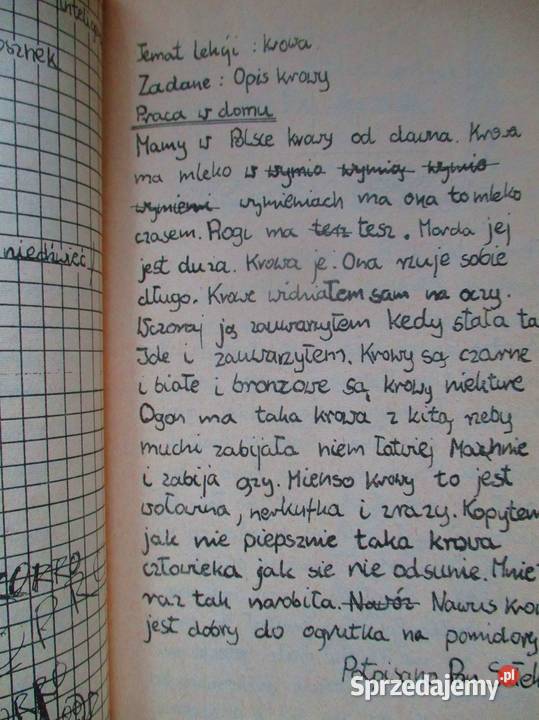 inteligen
osznek
niedźwieć
Temat lekcji : krowa
Zadane : Opis krowy
Praca w domu
Mamy w Polsce krowy od dawna. Krowa
ma mleko w wymio wymioą wymio
wymieni wymieniach ma ona to mleko
czasem. Rogi ma tesz tesz. Morda jej
jest duża. Krowa je. Ona rzuje sobie
długo. Krowe widniałem sam na oczy.
Wczoraj ją zauwarzyłem kedy stała ta
Ide i zauwarzyłem. Krowy są czarne
i białe i bronzowe są krowy niekture
Ogon ma taka krowa z kitą rzeby
muchi zabijała niem łatwiej Machnie
i zabija gzy. Mienso krowy to jest
wołowina, nerkufka i zrazy. Kopytem
jak nie piepsznie taka krowa
człowieka jak sie nie odsunie. Mnie
raz tak narobiła. Nawóz Nawus krow
jest dobry do ogrutka na pomidory
Sprzedajemy.pl